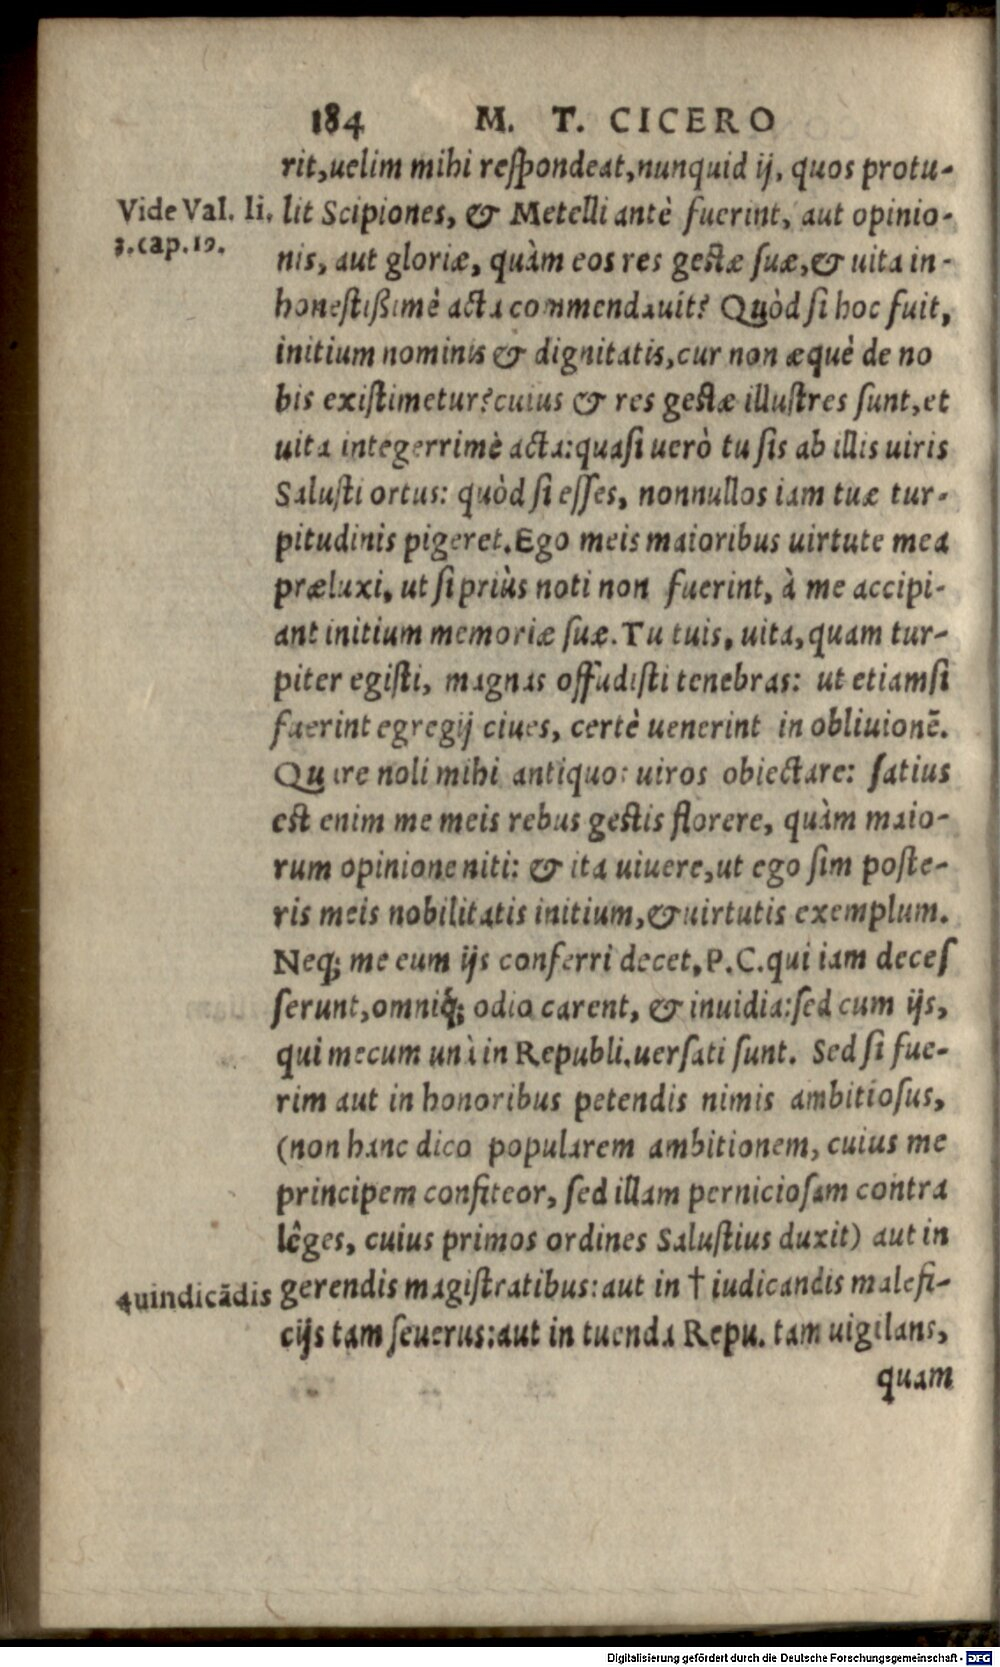 184 M. T. CICERO
rit,uelim mihi reſpondeat,nunquid ij, quos protu-
Vide Val. li.
3.cap.19.
lit Scipiones, & Metelli antè fuerint, aut opinio-
nis, aut gloriæ, quàm eos res geſtæ ſuæ,& uita in-
honeſtißimè acta commendauit? Quòd ſi hoc fuit,
initium nominis & dignitatis,cur non æquè de no
bis exiſtimetur?cuius & res geſtæ illuſtres ſunt,et
uita integerrimè acta:quaſi uerò tu ſis ab illis uiris
Saluſti ortus: quòd ſi eſſes, nonnullos iam tuæ tur-
pitudinis pigeret.Ego meis maioribus uirtute mea
præluxi, ut ſi priùs noti non fuerint, à me accipi-
ant initium memoriæ ſuæ.Tu tuis, uita,quam tur-
piter egiſti, magnas offudiſti tenebras: ut etiamſi
fuerint egregij ciues, certè uenerint in obliuionē.
Quare noli mihi antiquos uiros obiectare: ſatius
eſt enim me meis rebus geſtis florere, quàm maio-
rum opinione niti: & ita uiuere,ut ego ſim poſte-
ris meis nobilitatis initium,& uirtutis exemplum.
Neq; me eum ijs conferri decet,P.C.qui iam deceſ
ſerunt,omniq́; odio carent, & inuidia:ſed cum ijs,
qui mecum unà in Republi.uerſati ſunt. Sed ſi fue-
rim aut in honoribus petendis nimis ambitioſus,
(non hanc dico popularem ambitionem, cuius me
principem confiteor, ſed illam pernicioſam contra
lêges, cuius primos ordines Saluſtius duxit) aut in
4uindicādis
gerendis magiſtratibus:aut in † iudicandis malefi-
cijs tam ſeuerus:aut in tuenda Repu. tam uigilans,
quam
Digitalisierung gefördert durch die Deutsche Forschungsgemeinschaft - DFG